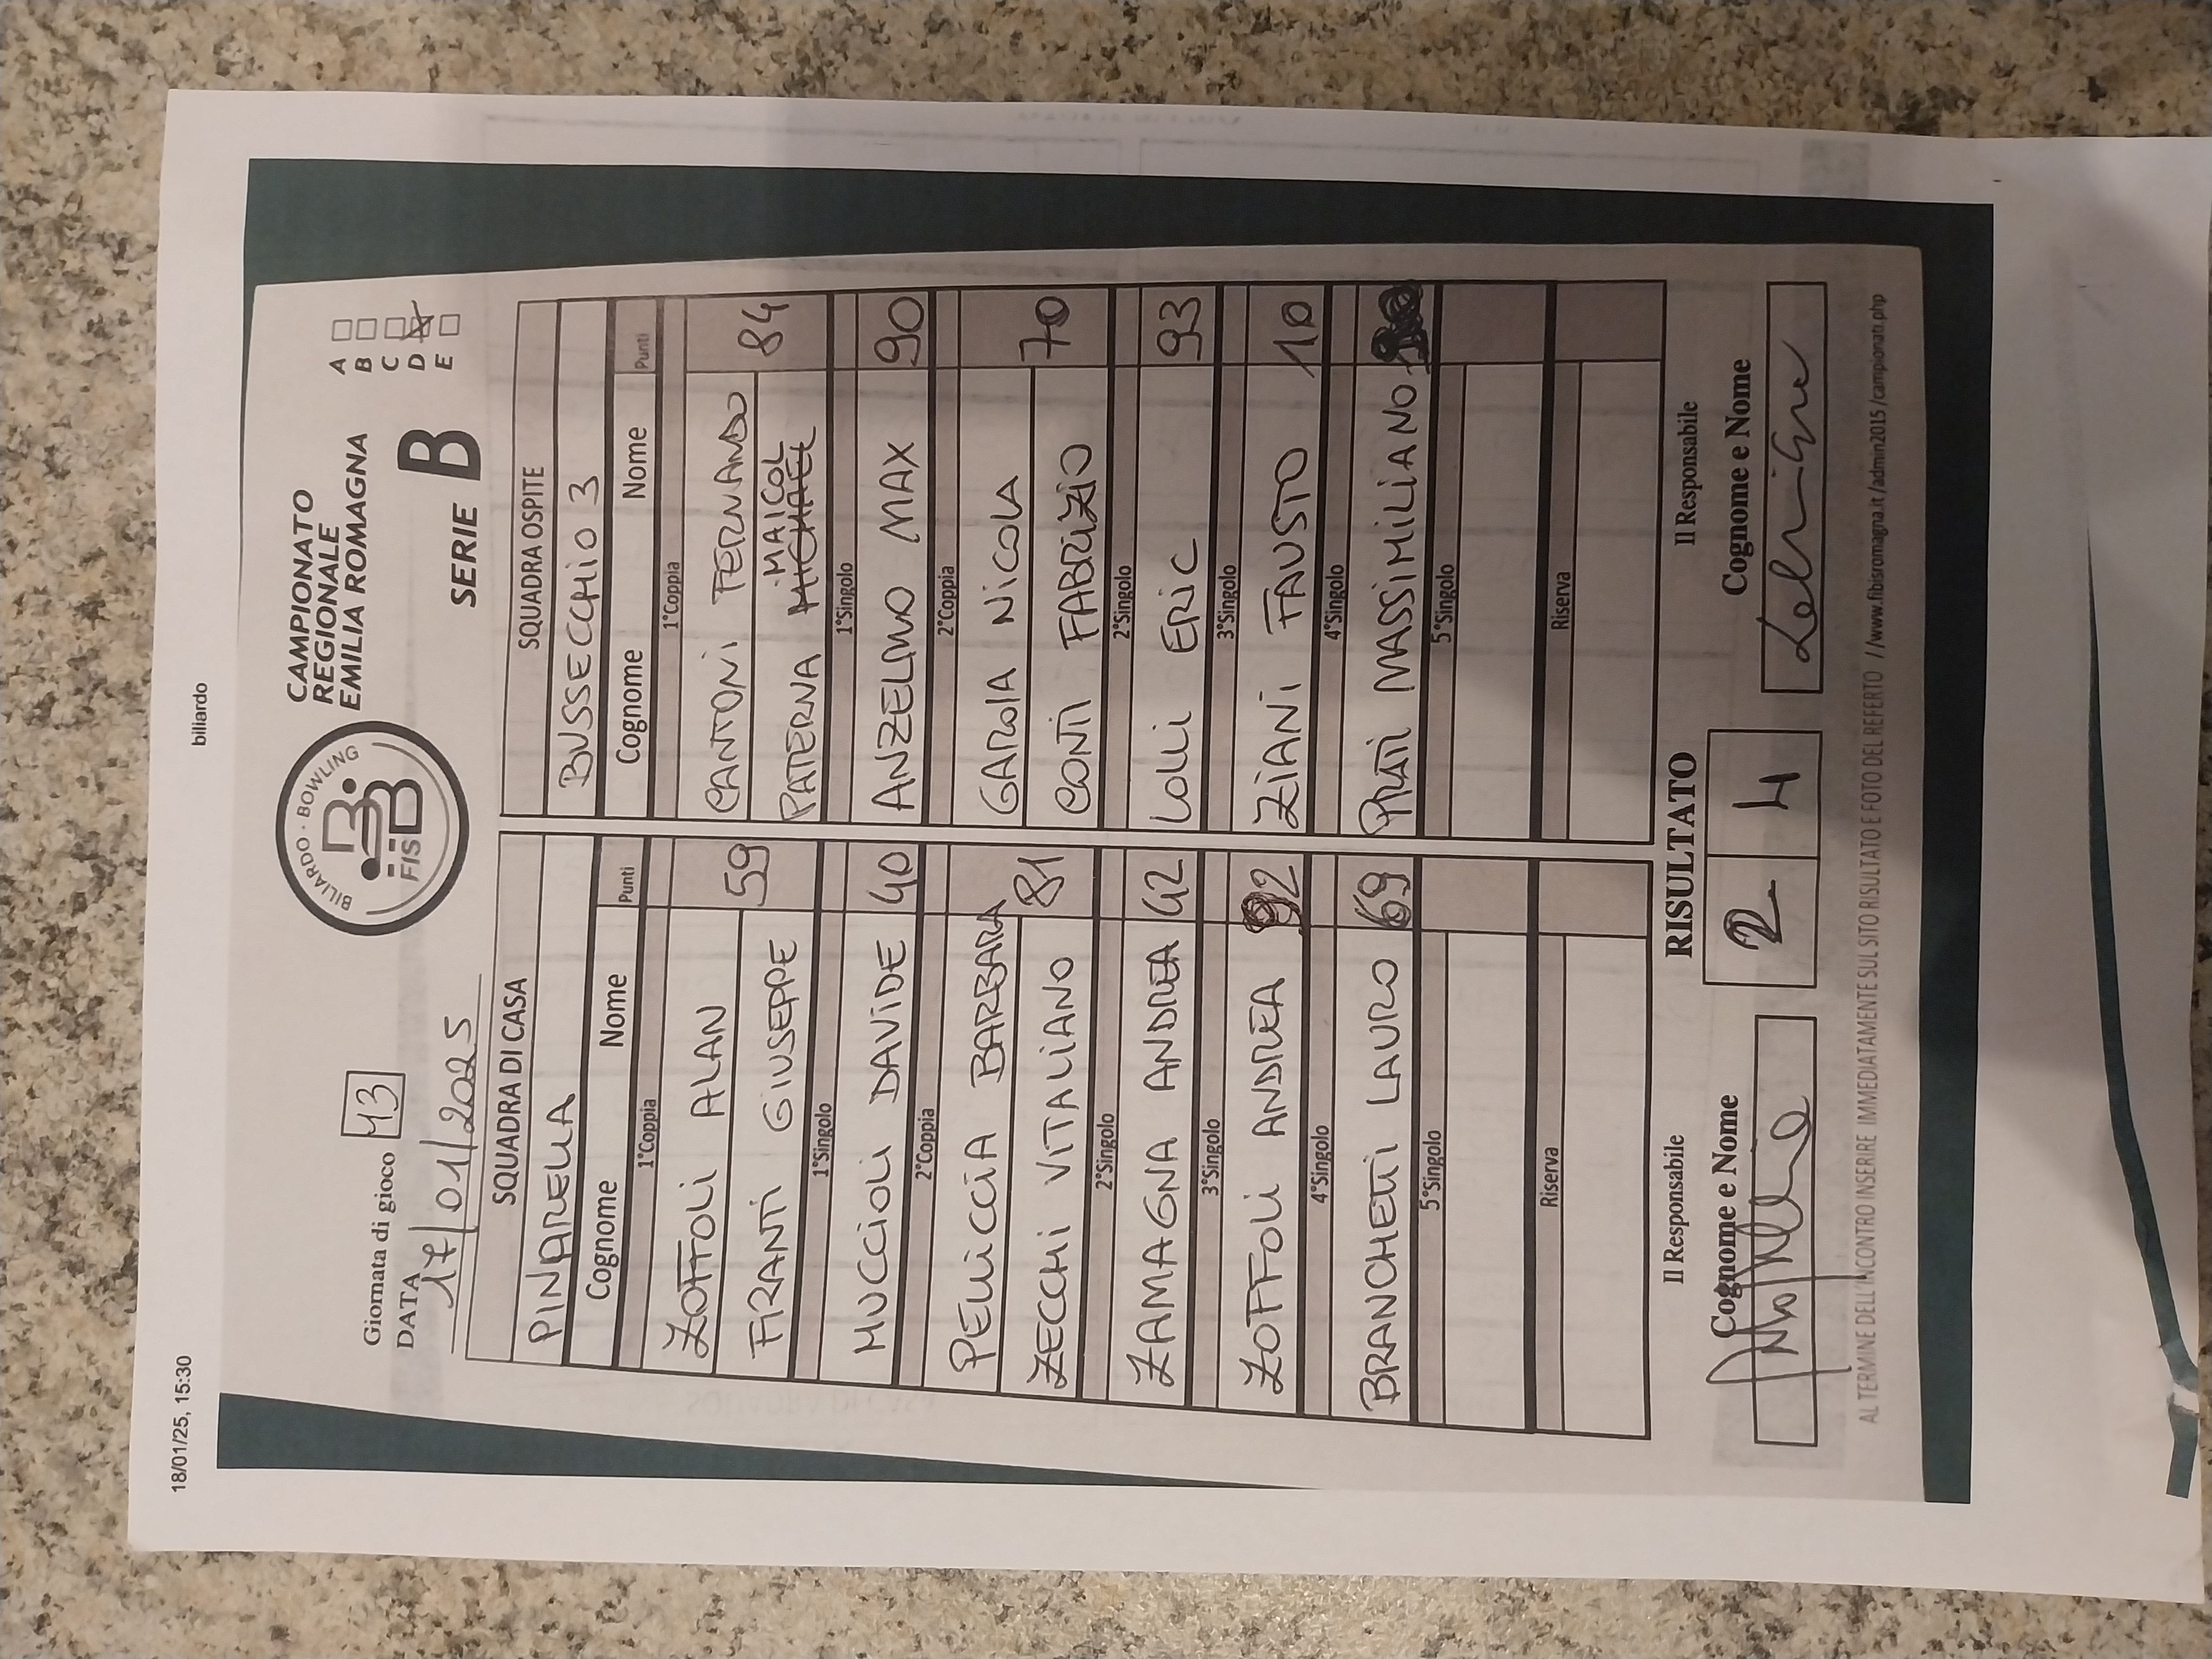 18/01/25, 15:30
biliardo
Giornata di gioco 13
DATA 17/01/2025
BILIARDO · BOWLING
FISBB
CAMPIONATO
REGIONALE
EMILIA ROMAGNA
SERIE B
A
B
C
D
E
SQUADRA DI CASA
PINARELLA
Cognome Nome Punti
1°Coppia
ZOFFOLI ALAN
FRANTI GIUSEPPE 59
1°Singolo
MUCCIOLI DAVIDE 40
2°Coppia
PELLICCIA BARBARA
ZECCHI VITALIANO 81
2°Singolo
ZAMAGNA ANDREA 42
3°Singolo
ZOFFOLI ANDREA 92
4°Singolo
BRANCHETTI LAURO 69
5°Singolo
Riserva
SQUADRA OSPITE
BUSSECCHIO 3
Cognome Nome Punti
1°Coppia
CANTONI FERNANDO
PATERNA MICHAEL MAICOL 84
1°Singolo
ANZELMO MAX 90
2°Coppia
GAROIA NICOLA
CONTI FABRIZIO 70
2°Singolo
LOLLI ERIC 93
3°Singolo
ZIANI FAUSTO 10
4°Singolo
PRATI MASSIMILIANO
5°Singolo
Riserva
Il Responsabile
Cognome e Nome
RISULTATO
2 4
Il Responsabile
Cognome e Nome
AL TERMINE DELL'INCONTRO INSERIRE IMMEDIATAMENTE SUL SITO RISULTATO E FOTO DEL REFERTO //www.fibisromagna.it/admin2015/campionati.php